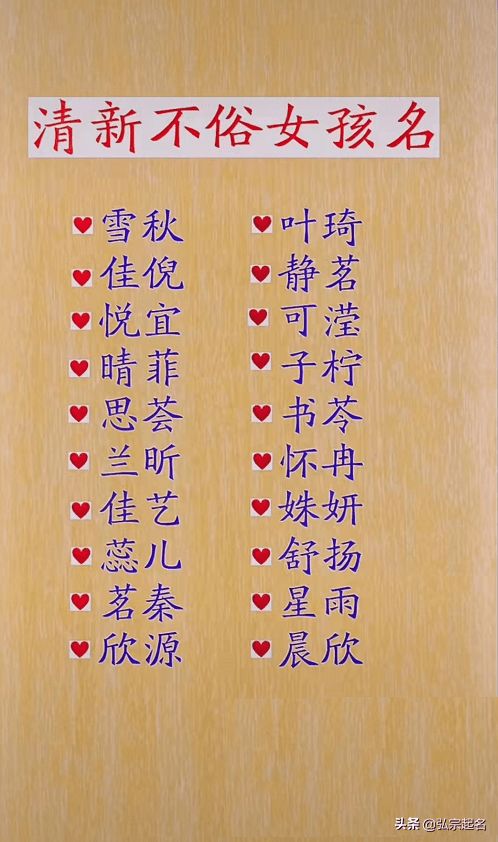 清新不俗女孩名
雪秋 叶琦
佳倪 静茗
悦宜 可滢
晴菲 子柠
思荟 书芩
兰昕 怀冉
佳艺 姝妍
蕊儿 舒扬
茗秦 星雨
欣源 晨欣
头条 @弘宗起名